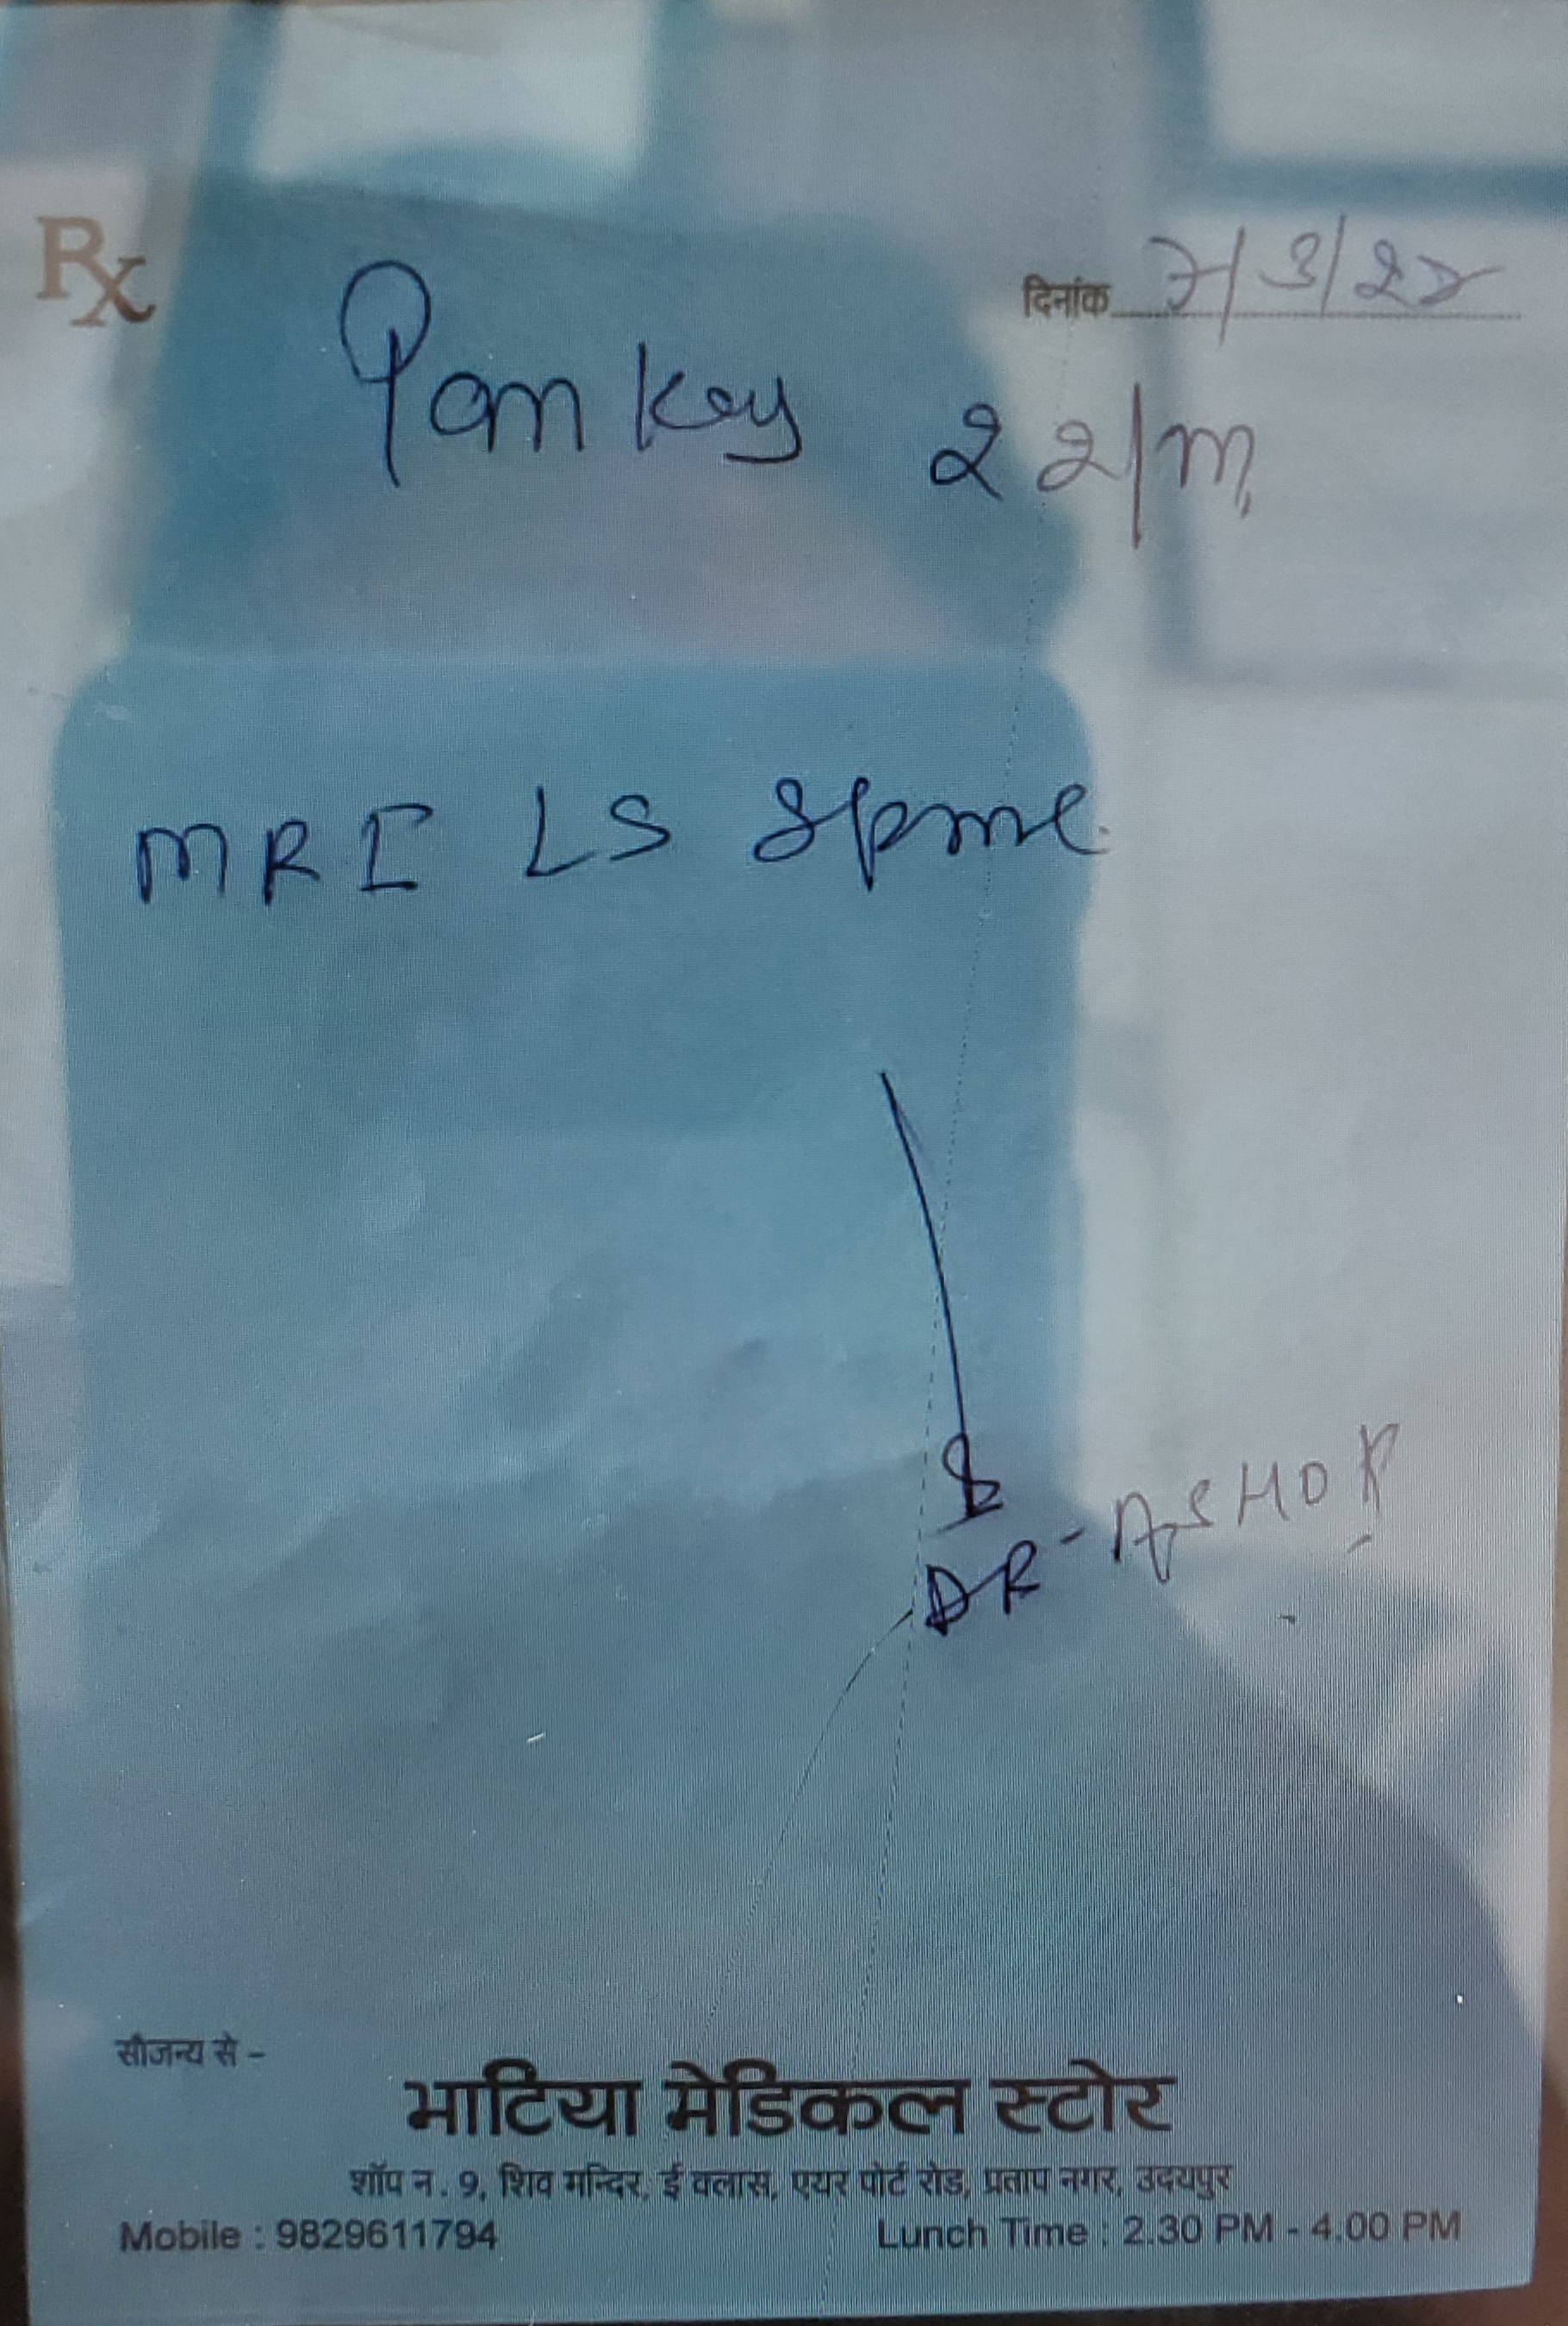 Rx
दिनांक 7/3/22
Pankaj 22/M
MRI LS Spine
DR-ASHOK
सौजन्य से -
भाटिया मेडिकल स्टोर
शॉप न. 9, शिव मन्दिर, ई क्लास, एयर पोर्ट रोड, प्रताप नगर, उदयपुर
Mobile : 9829611794 Lunch Time : 2.30 PM - 4.00 PM